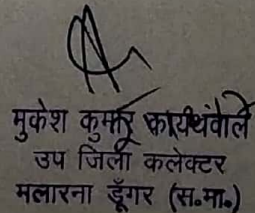 मुकेश कुमार कायथवाल
उप जिला कलेक्टर
मलारना डूँगर (स.मा.)